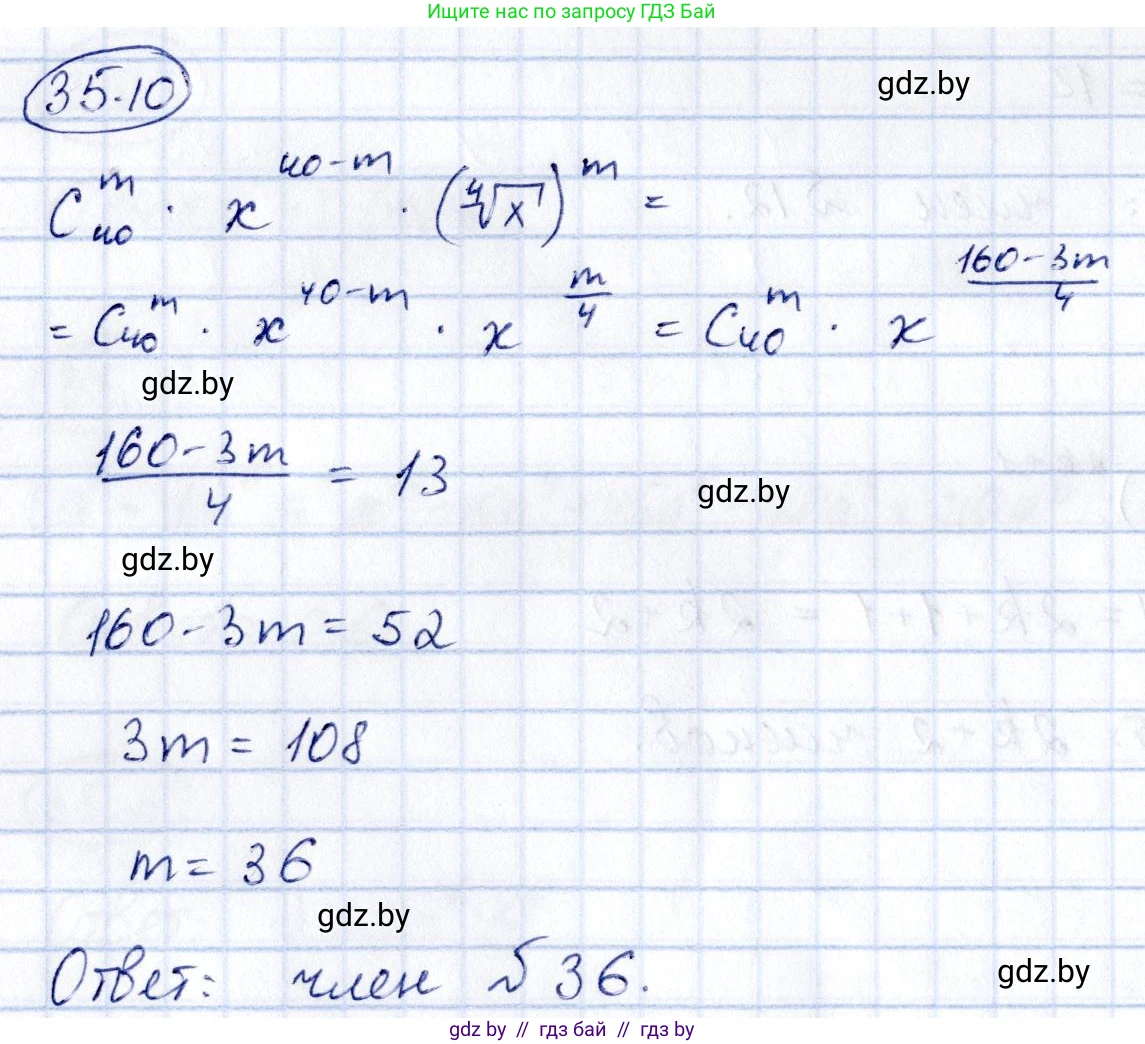 Ищите нас по запросу ГДЗ Бай
35.10
gdz.by
C₄₀ᵐ · x⁴⁰⁻ᵐ · (∜x)ᵐ =
= C₄₀ᵐ · x⁴⁰⁻ᵐ · x^(m/4) = C₄₀ᵐ · x^((160-3m)/4)
gdz.by
(160-3m)/4 = 13
gdz.by
gdz.by
160-3m = 52
3m = 108
m = 36
gdz.by
Ответ: член №36.
gdz.by
gdz by // гдз бай // гдз by